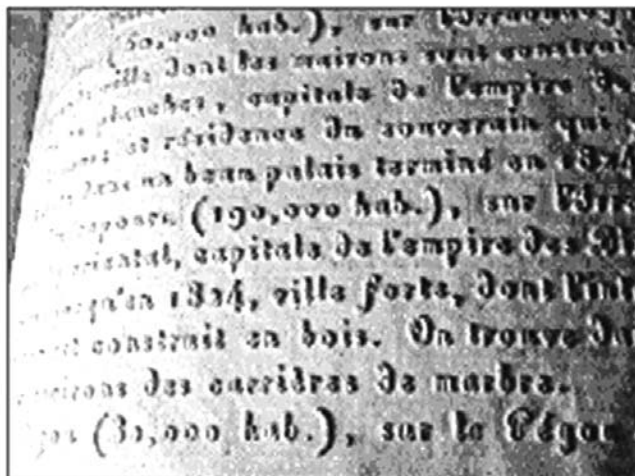 50,000 hab.), sur
ville dont les maisons sont construi
planches, capitale de l'empire de
et résidence du souverain qui
un beau palais terminé en 1824
(190,000 hab.), sur l'Irra
riental, capitale de l'empire des Bi
squ'en 1824, ville forte, dont l'int
construit en bois. On trouve da
virons des carrières de marbre.
(30,000 hab.), sur le Pégou